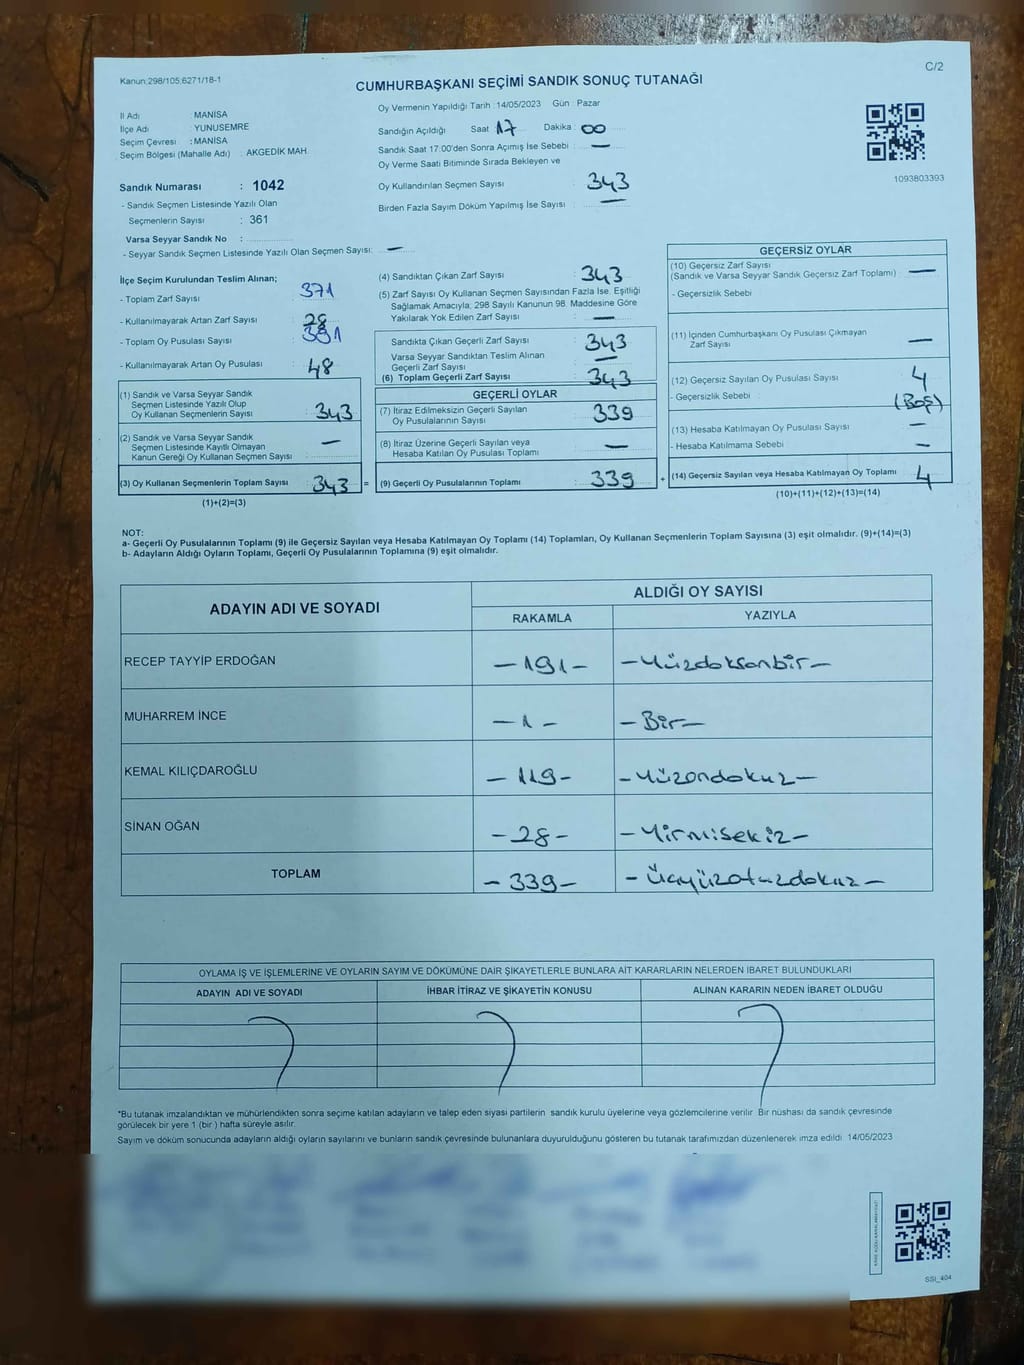 Kanun:298/105;6271/18-1
C/2
CUMHURBAŞKANI SEÇİMİ SANDIK SONUÇ TUTANAĞI
İl Adı MANİSA
İlçe Adı YUNUSEMRE
Seçim Çevresi : MANİSA
Seçim Bölgesi (Mahalle Adı) : AKGEDİK MAH.
Oy Vermenin Yapıldığı Tarih :14/05/2023 Gün : Pazar
Sandığın Açıldığı Saat 17 Dakika : 00
Sandık Saat 17:00'den Sonra Açımış İse Sebebi : —
Oy Verme Saati Bitiminde Sırada Bekleyen ve
Oy Kullandırılan Seçmen Sayısı : 343
Birden Fazla Sayım Döküm Yapılmış İse Sayısı : —
1093803393
Sandık Numarası : 1042
- Sandık Seçmen Listesinde Yazılı Olan
Seçmenlerin Sayısı : 361
Varsa Seyyar Sandık No :
- Seyyar Sandık Seçmen Listesinde Yazılı Olan Seçmen Sayısı: —
İlçe Seçim Kurulundan Teslim Alınan;
- Toplam Zarf Sayısı 371
- Kullanılmayarak Artan Zarf Sayısı : 28
- Toplam Oy Pusulası Sayısı : 391
- Kullanılmayarak Artan Oy Pusulası : 48
(1) Sandık ve Varsa Seyyar Sandık
Seçmen Listesinde Yazılı Olup
Oy Kullanan Seçmenlerin Sayısı : 343
(2) Sandık ve Varsa Seyyar Sandık
Seçmen Listesinde Kayıtlı Olmayan
Kanun Gereği Oy Kullanan Seçmen Sayısı : —
(3) Oy Kullanan Seçmenlerin Toplam Sayısı : 343 =
(1)+(2)=(3)
(4) Sandıktan Çıkan Zarf Sayısı : 343
(5) Zarf Sayısı Oy Kullanan Seçmen Sayısından Fazla İse, Eşitliği
Sağlamak Amacıyla; 298 Sayılı Kanunun 98. Maddesine Göre
Yakılarak Yok Edilen Zarf Sayısı : —
Sandıkta Çıkan Geçerli Zarf Sayısı : 343
Varsa Seyyar Sandıktan Teslim Alınan
Geçerli Zarf Sayısı : —
(6) Toplam Geçerli Zarf Sayısı : 343
GEÇERLİ OYLAR
(7) İtiraz Edilmeksizin Geçerli Sayılan
Oy Pusulalarının Sayısı : 339
(8) İtiraz Üzerine Geçerli Sayılan veya
Hesaba Katılan Oy Pusulası Toplamı : —
(9) Geçerli Oy Pusulalarının Toplamı : 339 +
GEÇERSİZ OYLAR
(10) Geçersiz Zarf Sayısı
(Sandık ve Varsa Seyyar Sandık Geçersiz Zarf Toplamı) : —
- Geçersizlik Sebebi :
(11) İçinden Cumhurbaşkanı Oy Pusulası Çıkmayan
Zarf Sayısı : —
(12) Geçersiz Sayılan Oy Pusulası Sayısı : 4
- Geçersizlik Sebebi : (Boş)
(13) Hesaba Katılmayan Oy Pusulası Sayısı : —
- Hesaba Katılmama Sebebi : —
(14) Geçersiz Sayılan veya Hesaba Katılmayan Oy Toplamı : 4
(10)+(11)+(12)+(13)=(14)
NOT:
a- Geçerli Oy Pusulalarının Toplamı (9) ile Geçersiz Sayılan veya Hesaba Katılmayan Oy Toplamı (14) Toplamları, Oy Kullanan Seçmenlerin Toplam Sayısına (3) eşit olmalıdır. (9)+(14)=(3)
b- Adayların Aldığı Oyların Toplamı, Geçerli Oy Pusulalarının Toplamına (9) eşit olmalıdır.
ADAYIN ADI VE SOYADI
ALDIĞI OY SAYISI
RAKAMLA YAZIYLA
RECEP TAYYİP ERDOĞAN —191— —Yüzdoksanbir—
MUHARREM İNCE —1— —Bir—
KEMAL KILIÇDAROĞLU —119— —Yüzondokuz—
SİNAN OĞAN —28— —Yirmisekiz—
TOPLAM —339— —Üçyüzotuzdokuz—
OYLAMA İŞ VE İŞLEMLERİNE VE OYLARIN SAYIM VE DÖKÜMÜNE DAİR ŞİKAYETLERLE BUNLARA AİT KARARLARIN NELERDEN İBARET BULUNDUKLARI
ADAYIN ADI VE SOYADI İHBAR İTİRAZ VE ŞİKAYETİN KONUSU ALINAN KARARIN NEDEN İBARET OLDUĞU
*Bu tutanak imzalandıktan ve mühürlendikten sonra seçime katılan adayların ve talep eden siyasi partilerin sandık kurulu üyelerine veya gözlemcilerine verilir. Bir nüshası da sandık çevresinde
görülecek bir yere 1 (bir) hafta süreyle asılır.
Sayım ve döküm sonucunda adayların aldığı oyların sayılarını ve bunların sandık çevresinde bulunanlara duyurulduğunu gösteren bu tutanak tarafımızdan düzenlenerek imza edildi 14/05/2023
SSI_404